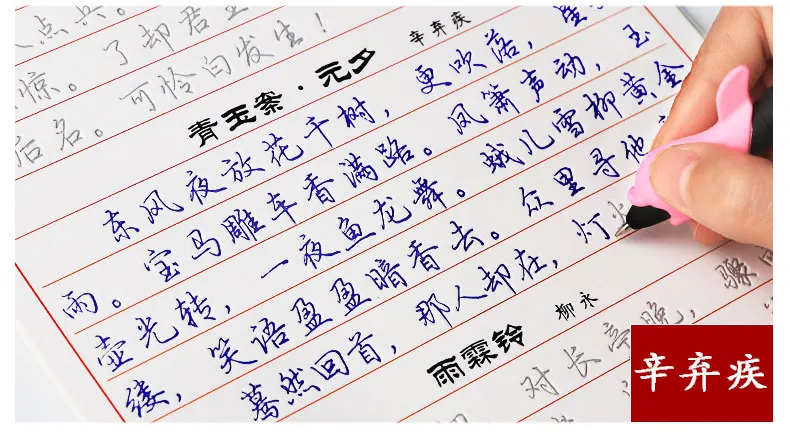 点兵。
惊。了却君王
后名。可怜白发生！
青玉案·元夕 辛弃疾
东风夜放花千树，更吹落，星
雨。宝马雕车香满路。凤箫声动，玉
壶光转，一夜鱼龙舞。蛾儿雪柳黄金
缕，笑语盈盈暗香去。众里寻他
蓦然回首，那人却在，灯火
雨霖铃 柳永
对长亭晚，骤
辛弃疾